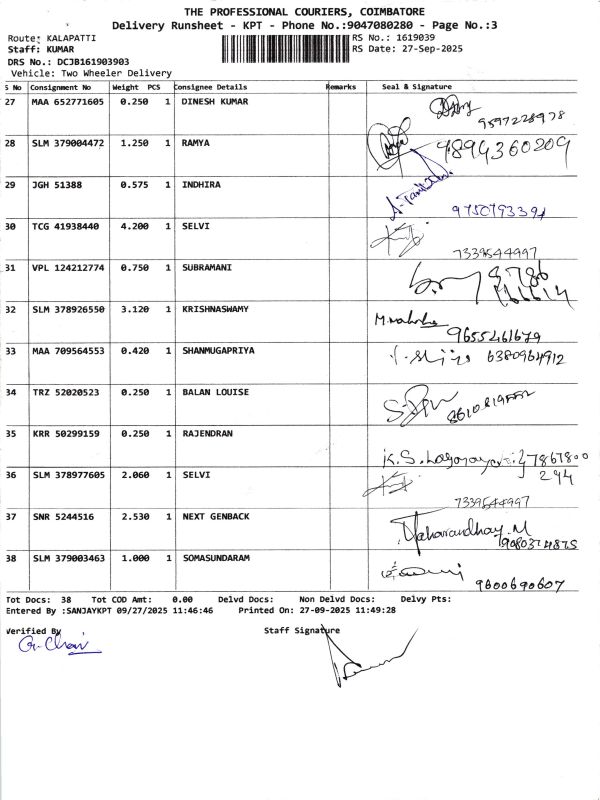 THE PROFESSIONAL COURIERS, COIMBATORE
Delivery Runsheet - KPT - Phone No.:9047080280 - Page No.:3
Route: KALAPATTI RS No.: 1619039
Staff: KUMAR RS Date: 27-Sep-2025
DRS No.: DCJB161903903
Vehicle: Two Wheeler Delivery
S No Consignment No Weight PCS Consignee Details Remarks Seal & Signature
27 MAA 652771605 0.250 1 DINESH KUMAR
9597228978
28 SLM 379004472 1.250 1 RAMYA 9894360209
29 JGH 51388 0.575 1 INDHIRA
9750793391
30 TCG 41938440 4.200 1 SELVI
7339544997
31 VPL 124212774 0.750 1 SUBRAMANI
32 SLM 378926550 3.120 1 KRISHNASWAMY
9655461679
33 MAA 709564553 0.420 1 SHANMUGAPRIYA 6380964912
34 TRZ 52020523 0.250 1 BALAN LOUISE
35 KRR 50299159 0.250 1 RAJENDRAN
K.S. 7867800
294
36 SLM 378977605 2.060 1 SELVI
7339544997
37 SNR 5244516 2.530 1 NEXT GENBACK
38 SLM 379003463 1.000 1 SOMASUNDARAM
9600690607
Tot Docs: 38 Tot COD Amt: 0.00 Delvd Docs: Non Delvd Docs: Delvy Pts:
Entered By :SANJAYKPT 09/27/2025 11:46:46 Printed On: 27-09-2025 11:49:28
Verified By Staff Signature